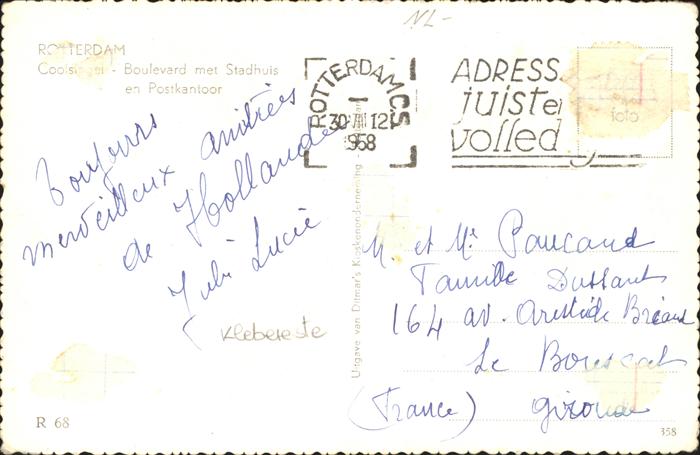 NL-
ROTTERDAM
Coolsingel - Boulevard met Stadhuis
en Postkantoor
ROTTERDAM C.S.
30 VII 12
1958
ADRESS
juist en
volled
foto
Toujours
merveilleux amitiés
de Hollande
Lucie
Klebereste
Uitgave van Ditmar's Kioskenonderneming -
M. et Me Paucand
Famille Dussaut
164 av. Aristide Briand
Le Bouscat
(France) Gironde
R 68
358